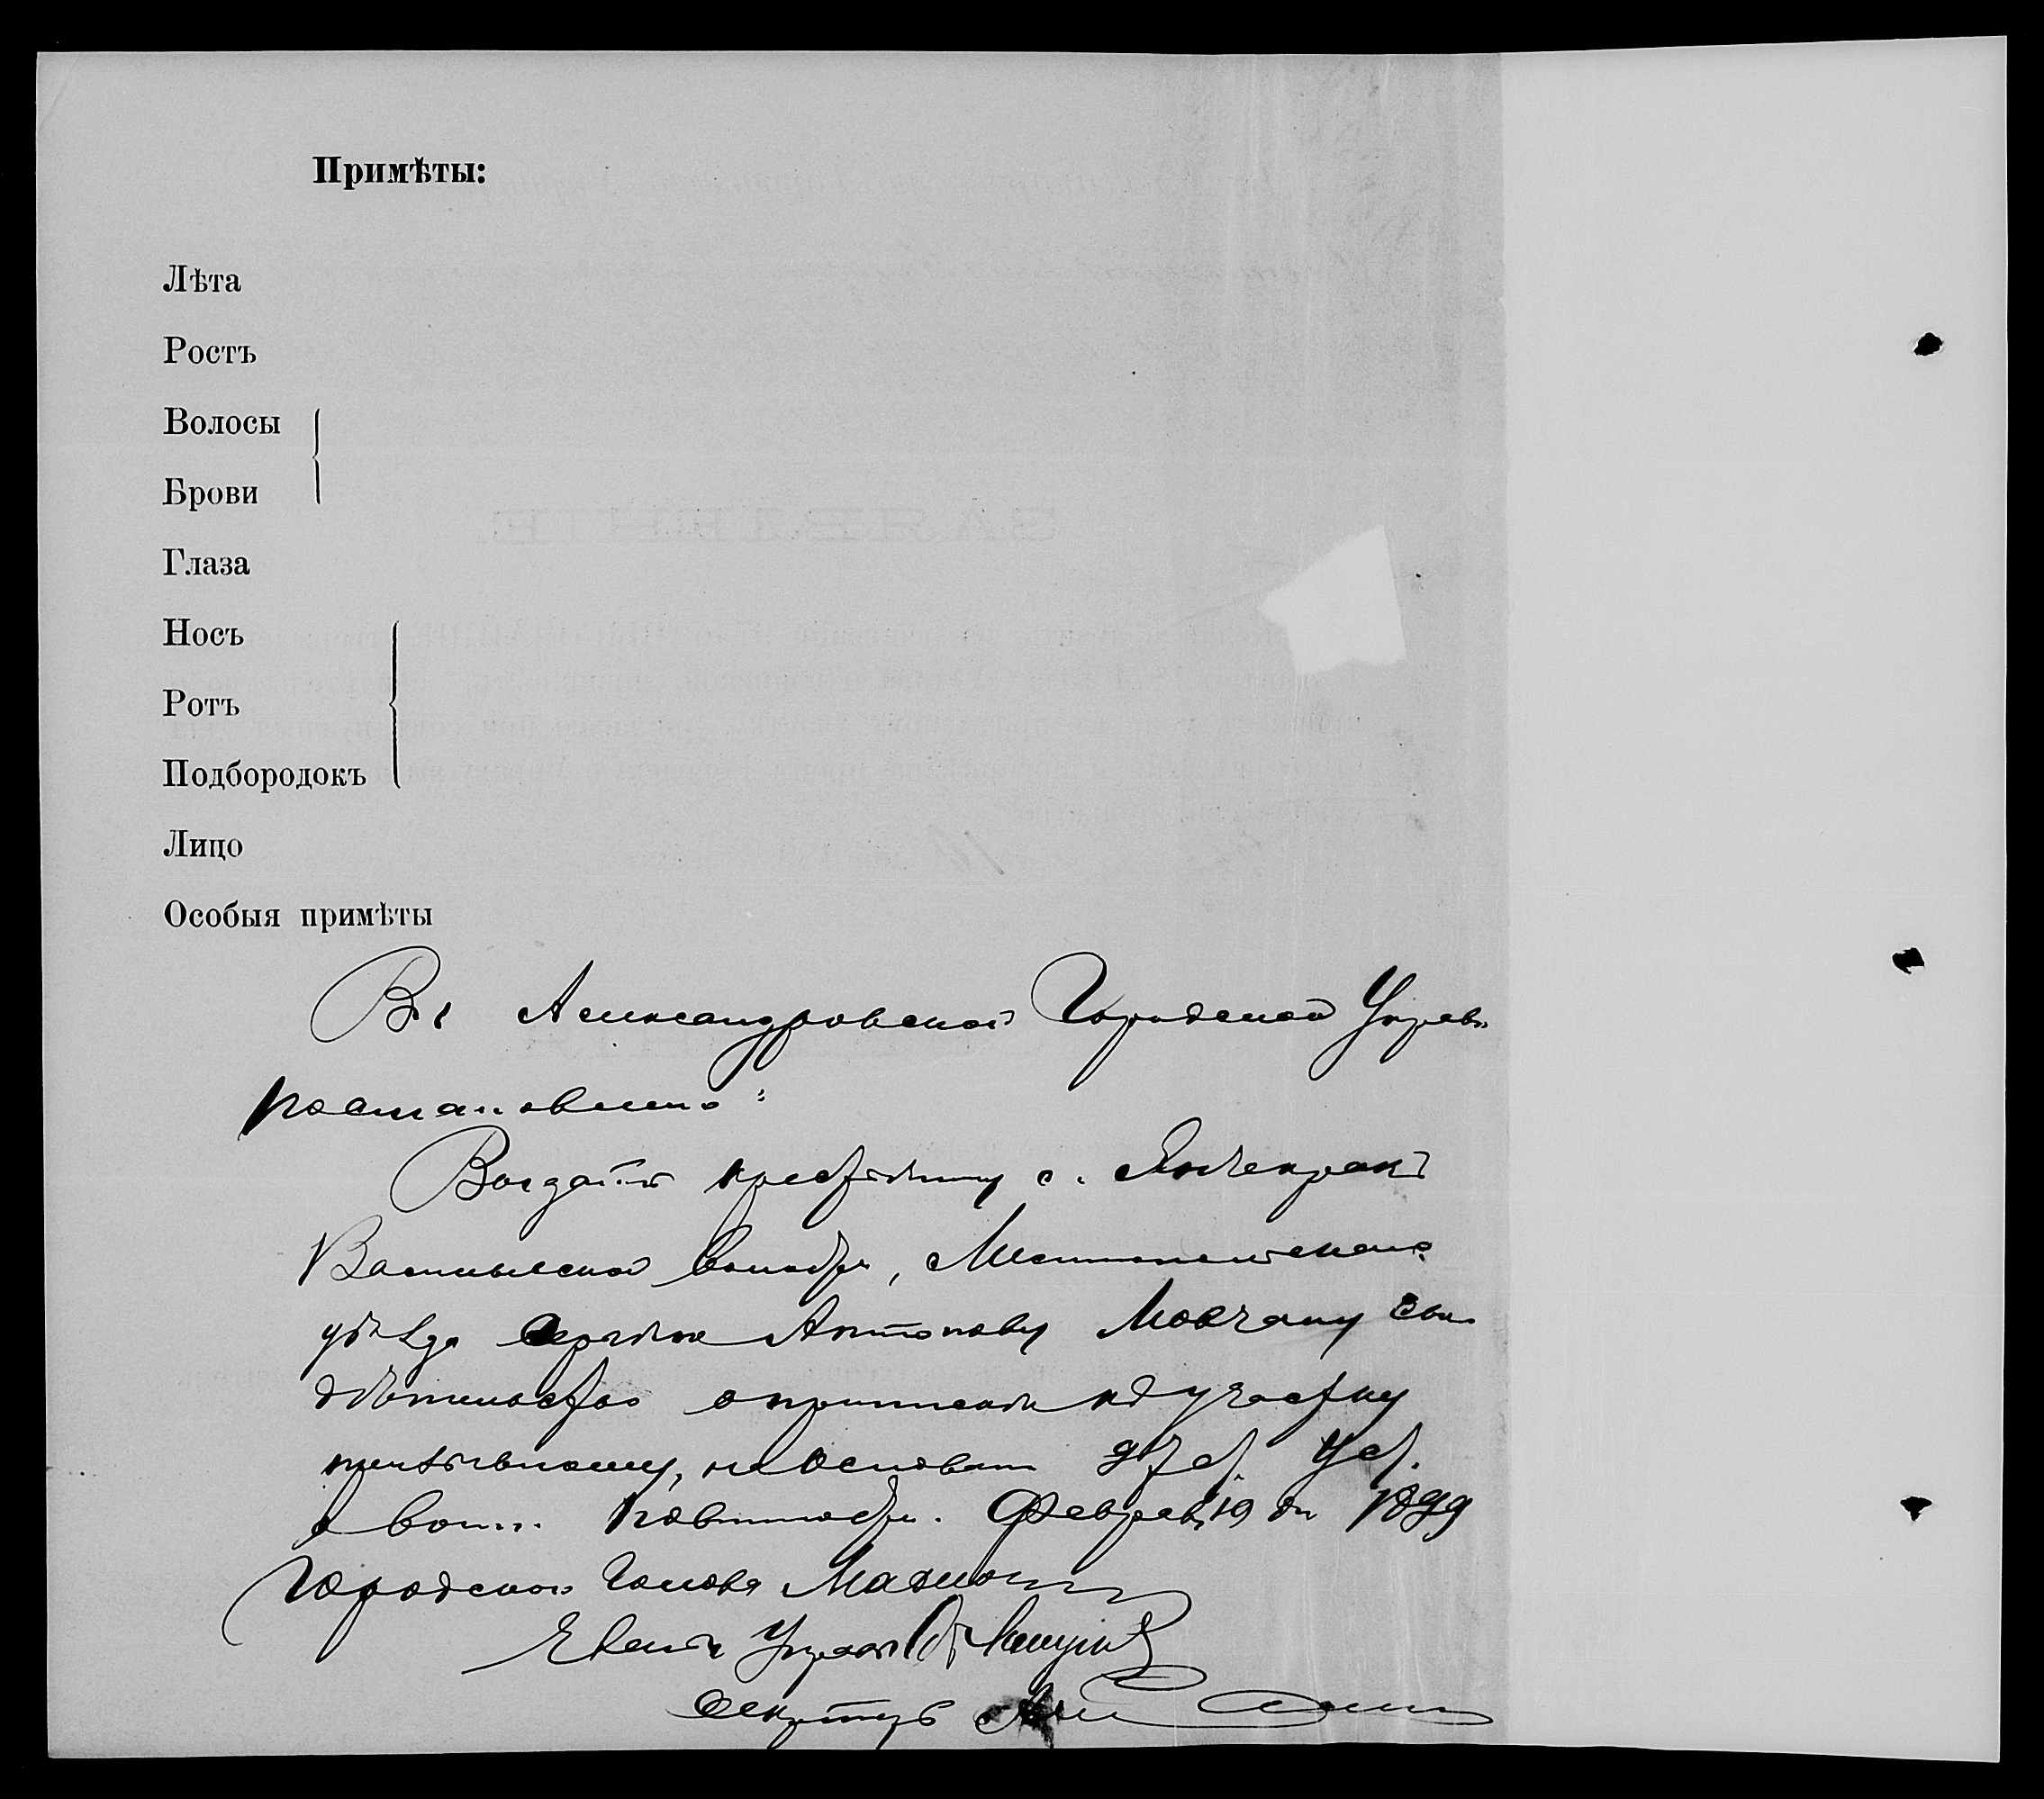 Примѣты:
Лѣта
Ростъ
Волосы
Брови
Глаза
Носъ
Ротъ
Подбородокъ
Лицо
Особыя примѣты
Въ Александровской Городской Управѣ
постановлено:
Выдать крестьянину с. Янчекракъ
Васильевской волости, Мелитопольскаго
уѣзда Антонову Мовчану сви
дѣтельство о припискѣ къ участку
призывному, на основан. 97 ст. Уст.
о воин. повинности. Февраля 19 дн. 1899
Городской Голова
Членъ Управы
Секретарь